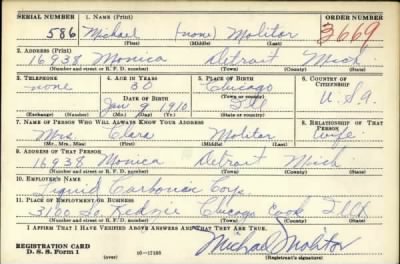 SERIAL NUMBER 1. NAME (Print) ORDER NUMBER
586 Michael (none) Molitor 3669
(First) (Middle) (Last)
2. ADDRESS (Print)
16938 Monica Detroit Mich.
(Number and street or R. F. D. number) (Town) (County) (State)
3. TELEPHONE 4. AGE IN YEARS 5. PLACE OF BIRTH 6. COUNTRY OF CITIZENSHIP
none 30 Chicago
DATE OF BIRTH (Town or county)
Jan 9 1910 Ill U.S.A.
(Exchange) (Number) (Mo.) (Day) (Yr.) (State or country)
7. NAME OF PERSON WHO WILL ALWAYS KNOW YOUR ADDRESS 8. RELATIONSHIP OF THAT PERSON
Mrs. Clara Molitor wife
(Mr., Mrs., Miss) (First) (Middle) (Last)
9. ADDRESS OF THAT PERSON
16938 Monica Detroit Mich
(Number and street or R. F. D. number) (Town) (County) (State)
10. EMPLOYER'S NAME
Liquid Carbonic Corp.
11. PLACE OF EMPLOYMENT OR BUSINESS
3100 So Kedzie Chicago Cook Ill
(Number and street or R. F. D. number) (Town) (County) (State)
I AFFIRM THAT I HAVE VERIFIED ABOVE ANSWERS AND THAT THEY ARE TRUE.
REGISTRATION CARD
D. S. S. Form 1 (over) 16—17105 Michael Molitor
(Registrant's signature)